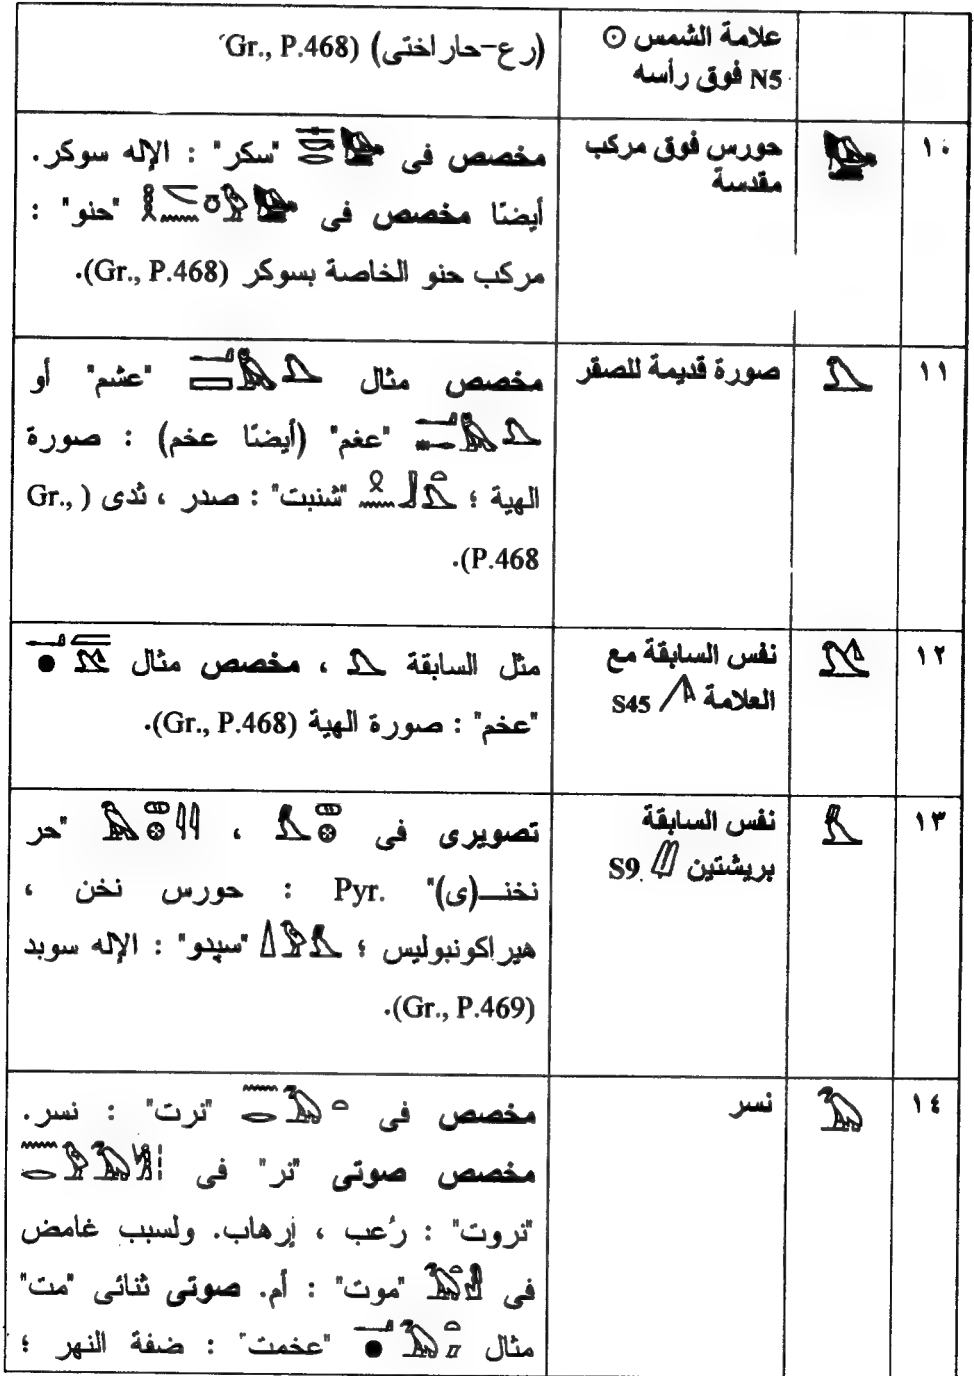 علامة الشمس ☉
N5 فوق رأسه
(رع-حاراختى) (Gr., P.468
١٠
حورس فوق مركب
مقدسة
مخصص فى "سكر" : الإله سوكر.
أيضًا مخصص فى "حنو" :
مركب حنو الخاصة بسوكر (Gr., P.468).
١١
صورة قديمة للصقر
مخصص مثال "عشم" أو
"عغم" (أيضًا عخم) : صورة
الهية ؛ "شنبت" : صدر ، ثدى (Gr.,
P.468).
١٢
نفس السابقة مع
العلامة S45
مثل السابقة ، مخصص مثال
"عخم" : صورة الهية (Gr., P.468).
١٣
نفس السابقة
بريشتين S9
تصويرى فى ، "حر
نخنـ(ى)" Pyr. : حورس نخن ،
هيراكونبوليس ؛ "سپدو" : الإله سوبد
(Gr., P.469).
١٤
نسر
مخصص فى "نرت" : نسر.
مخصص صوتى "نر" فى
"نروت" : رُعب ، إرهاب. ولسبب غامض
فى "موت" : أم. صوتى ثنائى "مت"
مثال "عخمت" : ضفة النهر ؛